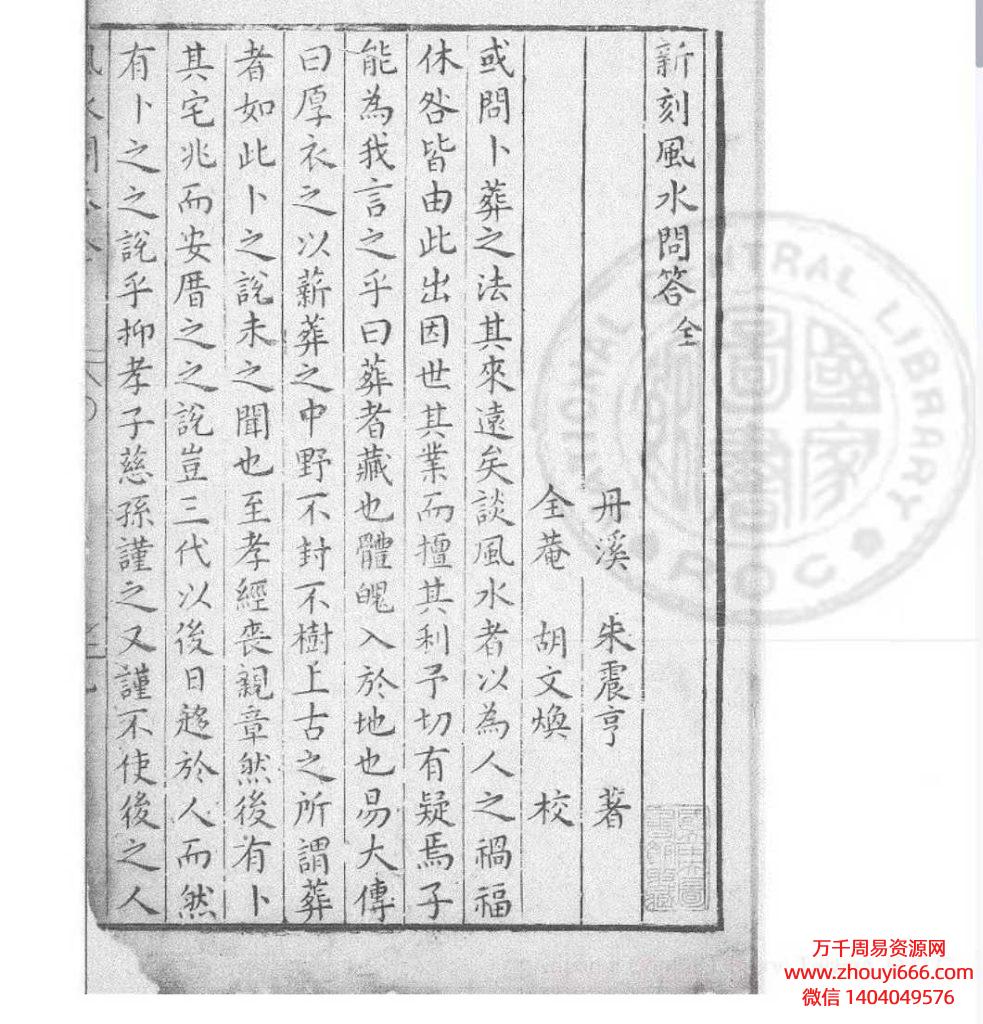 新刻風水問答 全
丹溪 朱震亨 著
全菴 胡文煥 校
或問卜葬之法其來遠矣談風水者以為人之禍福
休咎皆由此出因世其業而擅其利予切有疑焉子
能為我言之乎曰葬者藏也體魄入於地也易大傳
曰厚衣之以薪葬之中野不封不樹上古之所謂葬
者如此卜之說未之聞也至孝經喪親章然後有卜
其宅兆而安厝之之說豈三代以後日趨於人而然
有卜之之說乎抑孝子慈孫謹之又謹不使後之人
NATIONAL CENTRAL LIBRARY
國家圖書
ROC
万千周易资源网
www.zhouyi666.com
微信 1404049576